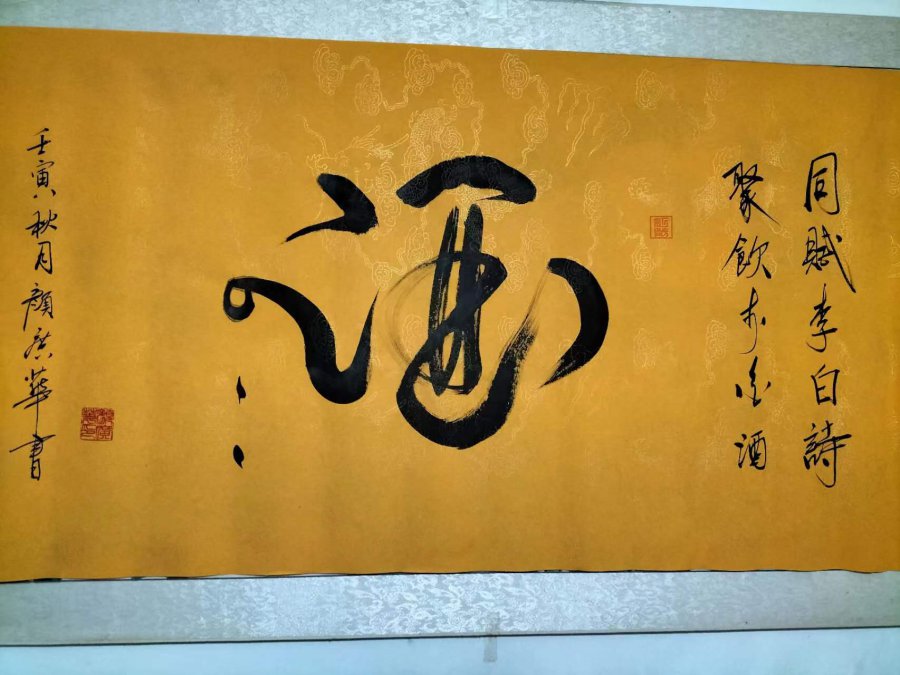 同賦李白詩
聚飲酒
酒
壬寅秋月顏廣華書